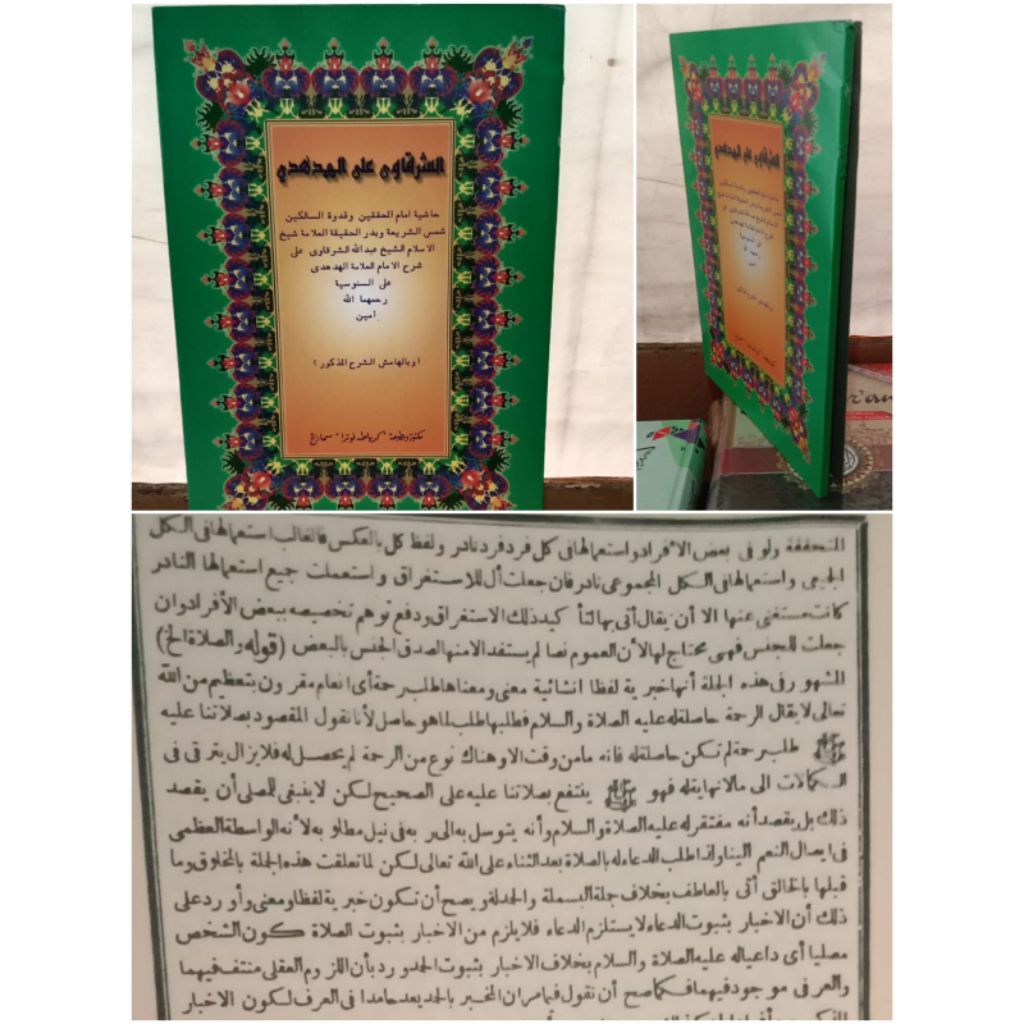 الشرقاوى على الهدهدي
حاشية امام المحققين وقدوة السالكين
شمس الشريعة وبدر الحقيقة العلامة شيخ
الاسلام الشيخ عبدالله الشرقاوى على
شرح الامام العلامة الهدهدى
على السنوسية
رحمهما الله
آمين
(وبالهامش الشرح المذكور)
مكتبة ومطبعة "كرياطه فوترا" سماراغ
المتحققة ولو فى بعض الأفراد واستعمالها فى كل فرد فرد نادر ولفظ كل بالعكس فالغالب استعمالها فى الكل
الجيعى واستعمالها فى الكل المجموعى نادر فان جعلت أل للاستغراق واستعملت جميع استعمالها النادر
كانت مستغنى عنها الا أن يقال أتى بها لتأ كيد ذلك الاستغراق ودفع توهم تخصيصه ببعض الأفراد وان
جعلت للجنس فهى محتاج لها لأن العموم نصا لم يستفد الا منها لصدق الجنس بالبعض (قوله والصلاة الخ)
المشهور فى هذه الجملة أنها خبرية لفظا انشائية معنى ومعناها طلب رحمة أى انعام مقرون بتعظيم من الله
تعالى لا يقال الرحمة حاصلة له عليه الصلاة والسلام فطلبها طلب لما هو حاصل لأنا نقول المقصود بصلاتنا عليه
ﷺ طلب رحمة لم تكن حاصلة له فانه ما من وقت الا وهناك نوع من الرحمة لم يحصل له فلا يزال يترقى فى
الكمالات الى مالا نهاية له فهو ﷺ ينتفع بصلاتنا عليه على الصحيح لكن لا ينبغى للمصلى أن يقصد
ذلك بل يقصد أنه مفتقر له عليه الصلاة والسلام وأنه يتوسل به الى ربه فى نيل مطلوبه لأنه الواسطة العظمى
فى ايصال النعم الينا ولذا طلب الدعاء له بالصلاة بعد الثناء على الله تعالى لكن لما تعلقت هذه الجملة بالمخلوق وما
قبلها بالخالق أتى بالعاطف بخلاف جملة البسملة والحمدلة ويصح أن تكون خبرية لفظا ومعنى وأورد على
ذلك أن الاخبار بثبوت الدعاء لا يستلزم الدعاء فلا يلزم من الاخبار بثبوت الصلاة كون الشخص
مصليا أى داعيا له عليه الصلاة والسلام بخلاف الاخبار بثبوت الحمد ورد بأن اللزوم العقلى منتف فيهما
والعرفى موجود فيهما فكما صح أن نقول فيما مر ان المخبر بالحمد يعد حامدا فى العرف لكون الاخبار